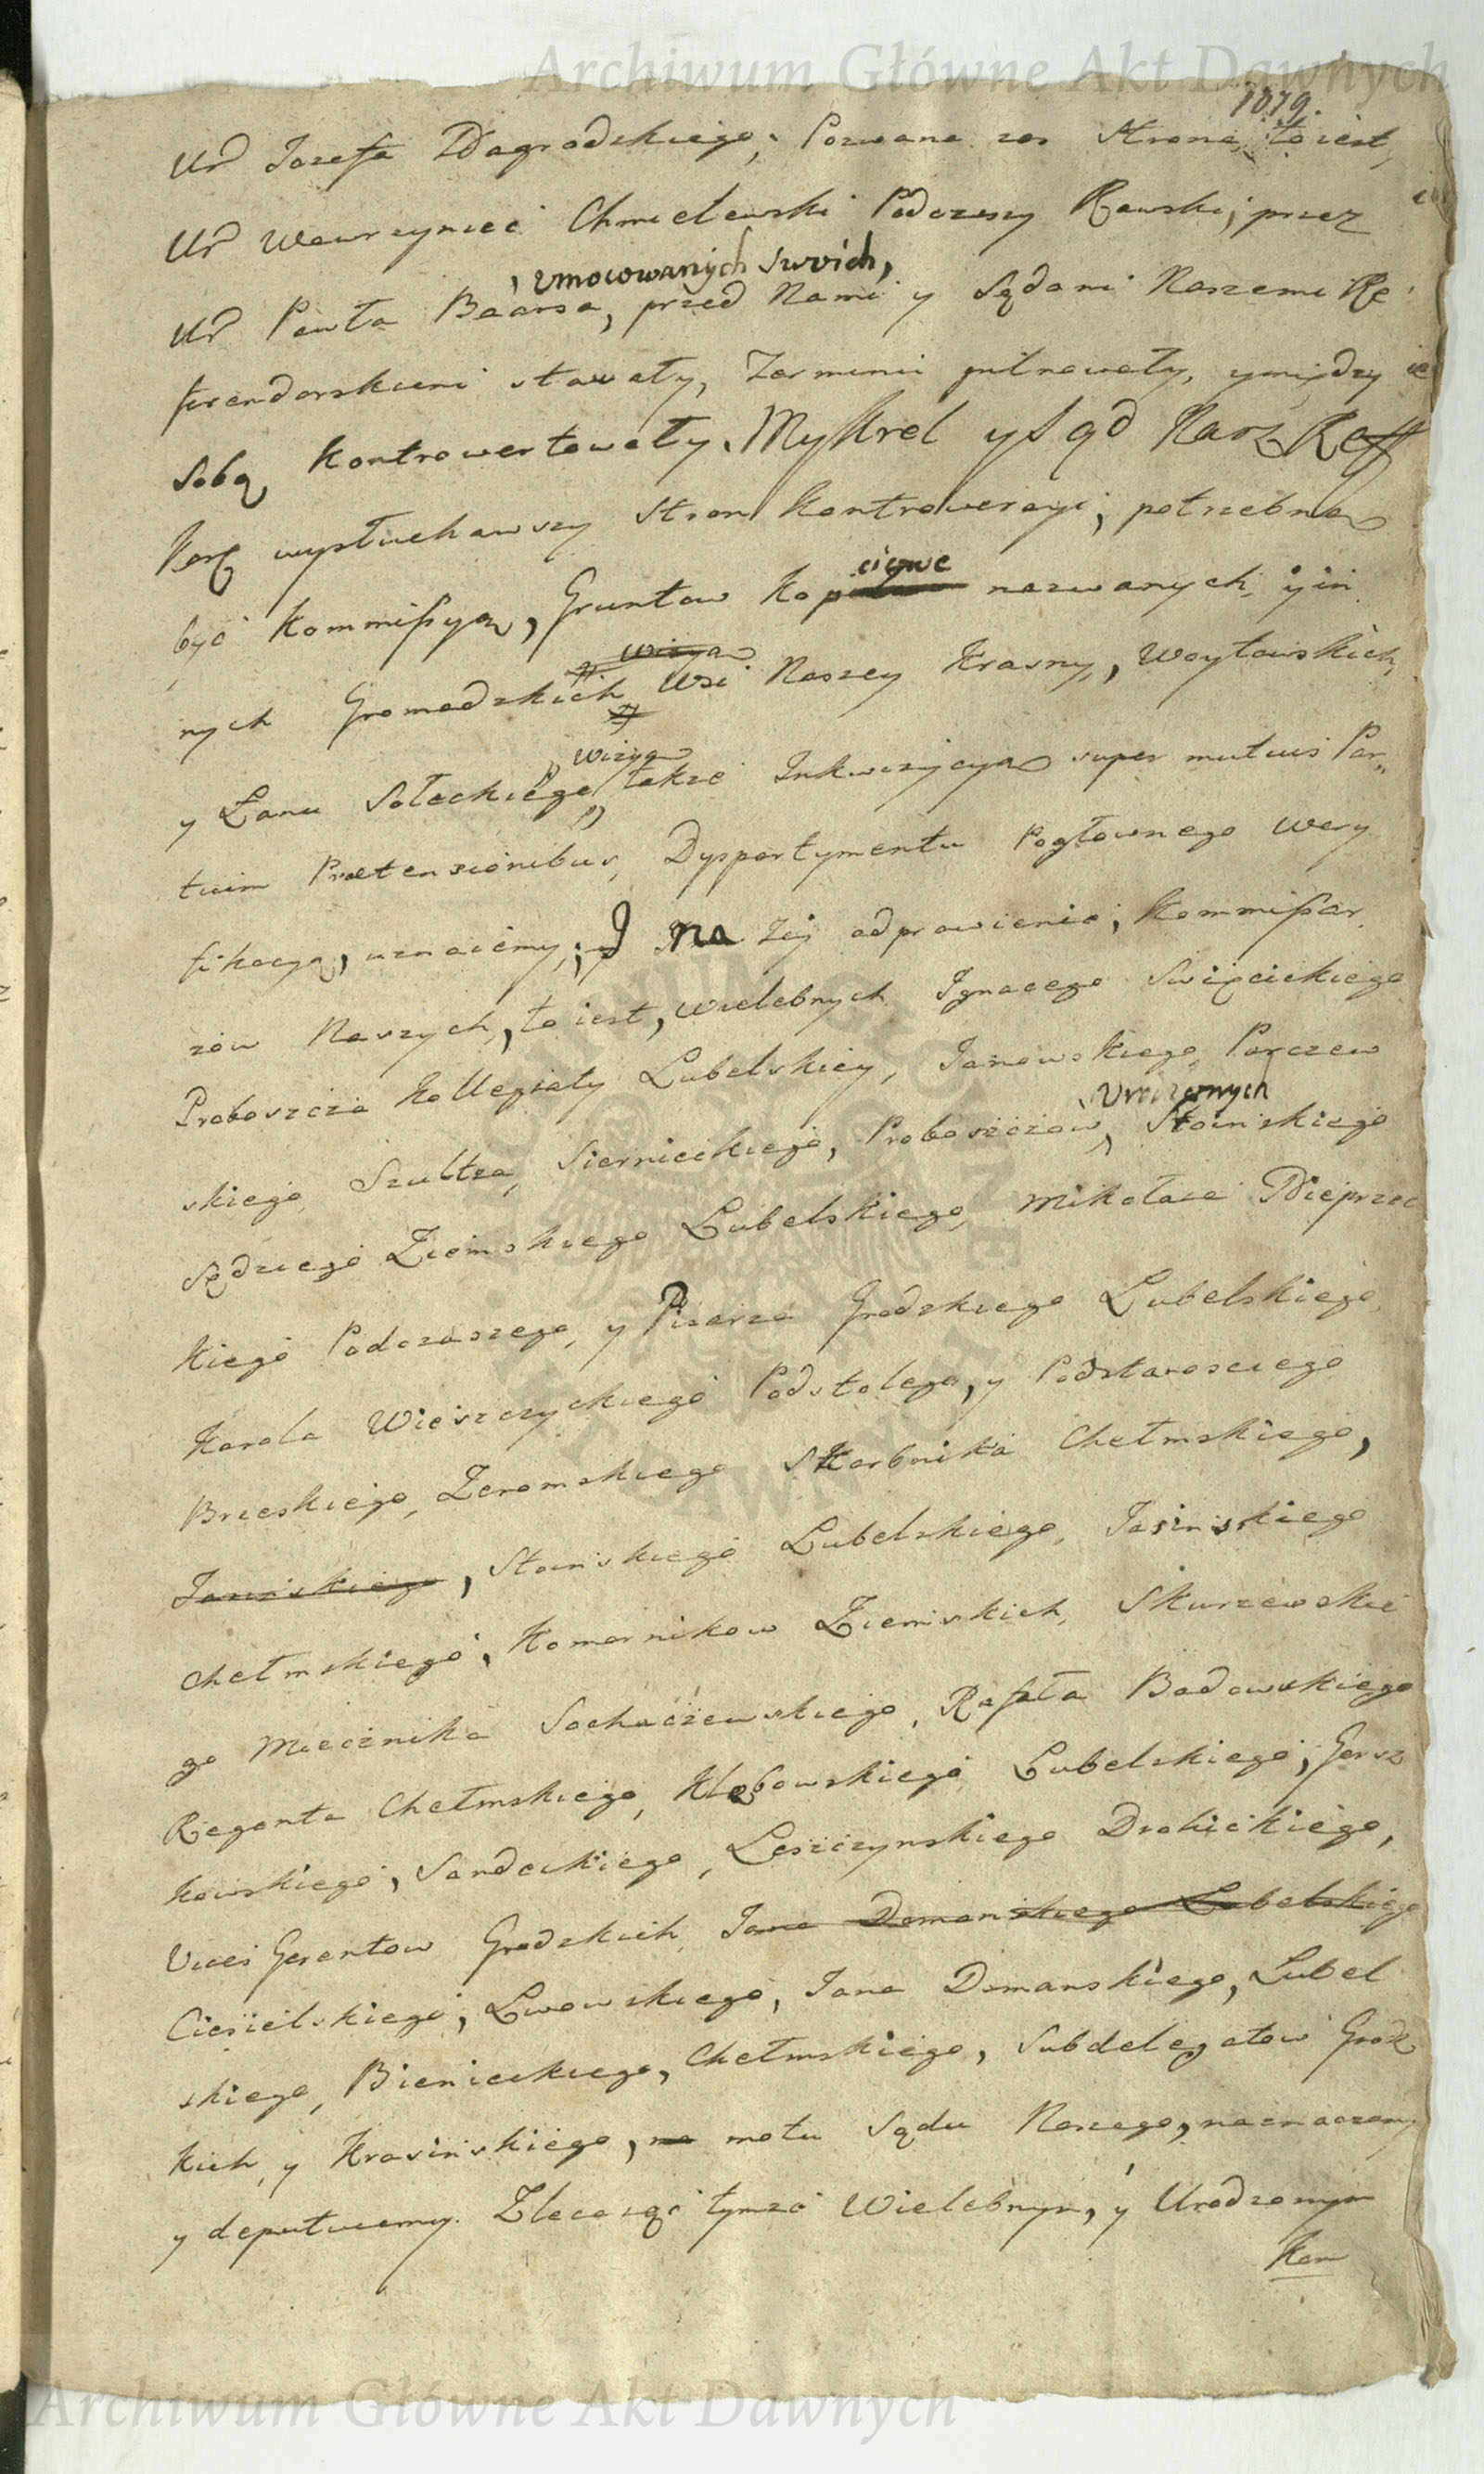 Archiwum Główne Akt Dawnych
1079.
Ur Jozefa Zagrodzkiego; Pozwana zas Strona, to iest,
Ur Wawrzyniec Chmielewski Podczaszy Rawski; przez
, Umocowanych Swoich,
Ur Pawła Baarsa, przed Nami y Sądami Naszemi Re
ferendarskiemi stawały, Terminu pilnowały, y między
Sobą kontrowertowały. My Krol y Sąd Nasz Reff
Kor wysłuchawszy Stron Kontrowersyi, potrzebną
być Kommissyą, Gruntow Kop cicowe nazwanych, y in
nych Gromadzkich wizyą Wsi Naszey Krasny, Woytowskich,
wizyą
y Łanu Sołeckiego, także Inkwizycyą super mutuis Par„
tium Praetensionibus, Dyspartymentu Pogłownego wery
fikacyą, uznaiemy; I na iey odprawienie, Kommissar
zow Naszych, to iest, Wielebnych Ignacego Swięcickiego
Proboszcza Kollegiaty Lubelskiey, Janowskiego Parczew
Urodzonych
skiego, Szultza, Siernickiego, Proboszczow, Stoinskiego
Sędziego Ziemskiego Lubelskiego, Mikołaia Dieprzec
kiego Podczaszego, y Pisarza Grodzkiego Lubelskiego,
Karola Wieszczyckiego Podstolego, y Podstarosciego
Brzeskiego, Zeromskiego Skarbnika Chełmskiego,
Jasinskiego, Stoinskiego Lubelskiego, Jasinskiego
Chełmskiego, Komornikow Ziemskich, Skurzewskie
go Miecznika Sochaczewskiego, Rafała Badowskiego
Regenta Chełmskiego, Klebowskiego Lubelskiego, Gorsz
kowskiego, Sandeckiego, Leszczynskiego Drohickiego,
Vices Gerentow Grodzkich, Jana Domanskiego Lubelskiego
Ciesielskiego, Lwowskiego, Jana Domanskiego, Lubel
skiego, Bienieckiego, Chełmskiego, Subdelegatow Grodz
kich, y Krasinskiego, na motu Sądu Naszego, naznaczamy
y deputuiemy. Zlecaiąc tymże Wielebnym, y Urodzonym
Kom
Archiwum Główne Akt Dawnych